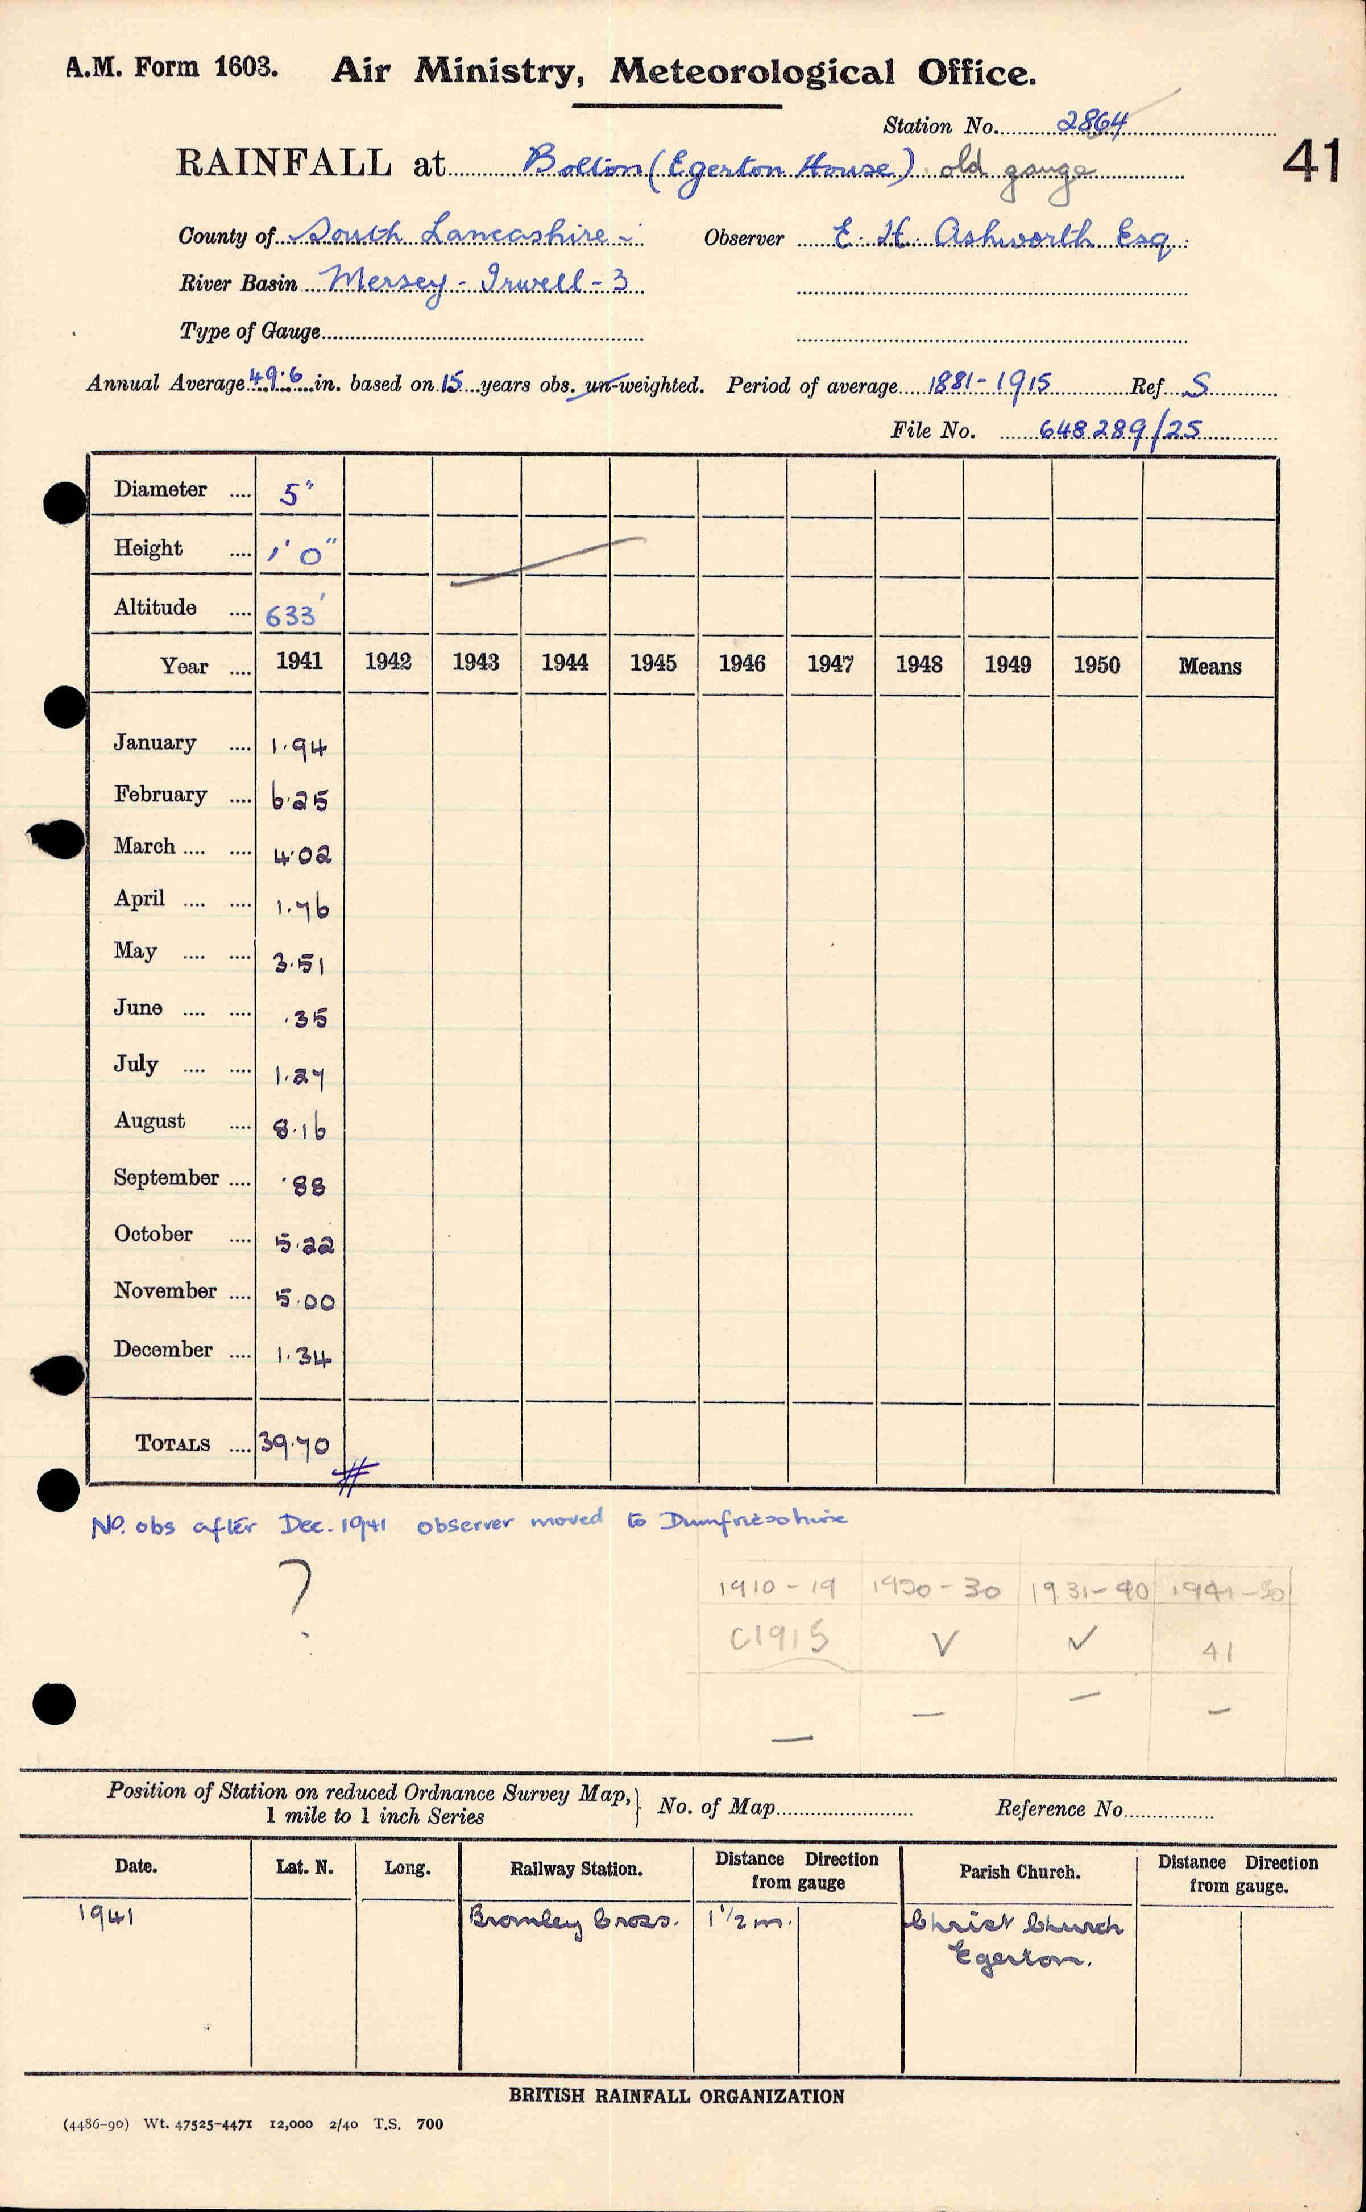 A.M. Form 1603. Air Ministry, Meteorological Office.
Station No. 2864
41
RAINFALL at Bolton (Egerton House) old gauge
County of South Lancashire - Observer E. H. Ashworth Esq.
River Basin Mersey - Irwell - 3
Type of Gauge
Annual Average 49.6 in. based on 15 years obs. un-weighted. Period of average 1881-1915 Ref. S
File No. 648289/25
Diameter .... 5"
Height .... 1' 0"
Altitude .... 633'
Year .... 1941 1942 1943 1944 1945 1946 1947 1948 1949 1950 Means
January .... 1.94
February .... 6.25
March .... .... 4.02
April .... .... 1.76
May .... .... 3.51
June .... .... .35
July .... .... 1.27
August .... 8.16
September .... .88
October .... 5.22
November .... 5.00
December .... 1.34
TOTALS .... 39.70
#
No. obs after Dec. 1941 observer moved to Dumfriesshire
?
1910-19 1920-30 1931-40 1941-50
C1915 ✓ ✓ 41
— — — —
Position of Station on reduced Ordnance Survey Map,} No. of Map Reference No.
1 mile to 1 inch Series
Date. Lat. N. Long. Railway Station. Distance Direction from gauge Parish Church. Distance Direction from gauge.
1941 Bromley Cross. 1 1/2 m. Christ Church
Egerton.
BRITISH RAINFALL ORGANIZATION
(4486-90) Wt. 47525-4471 12,000 2/40 T.S. 700